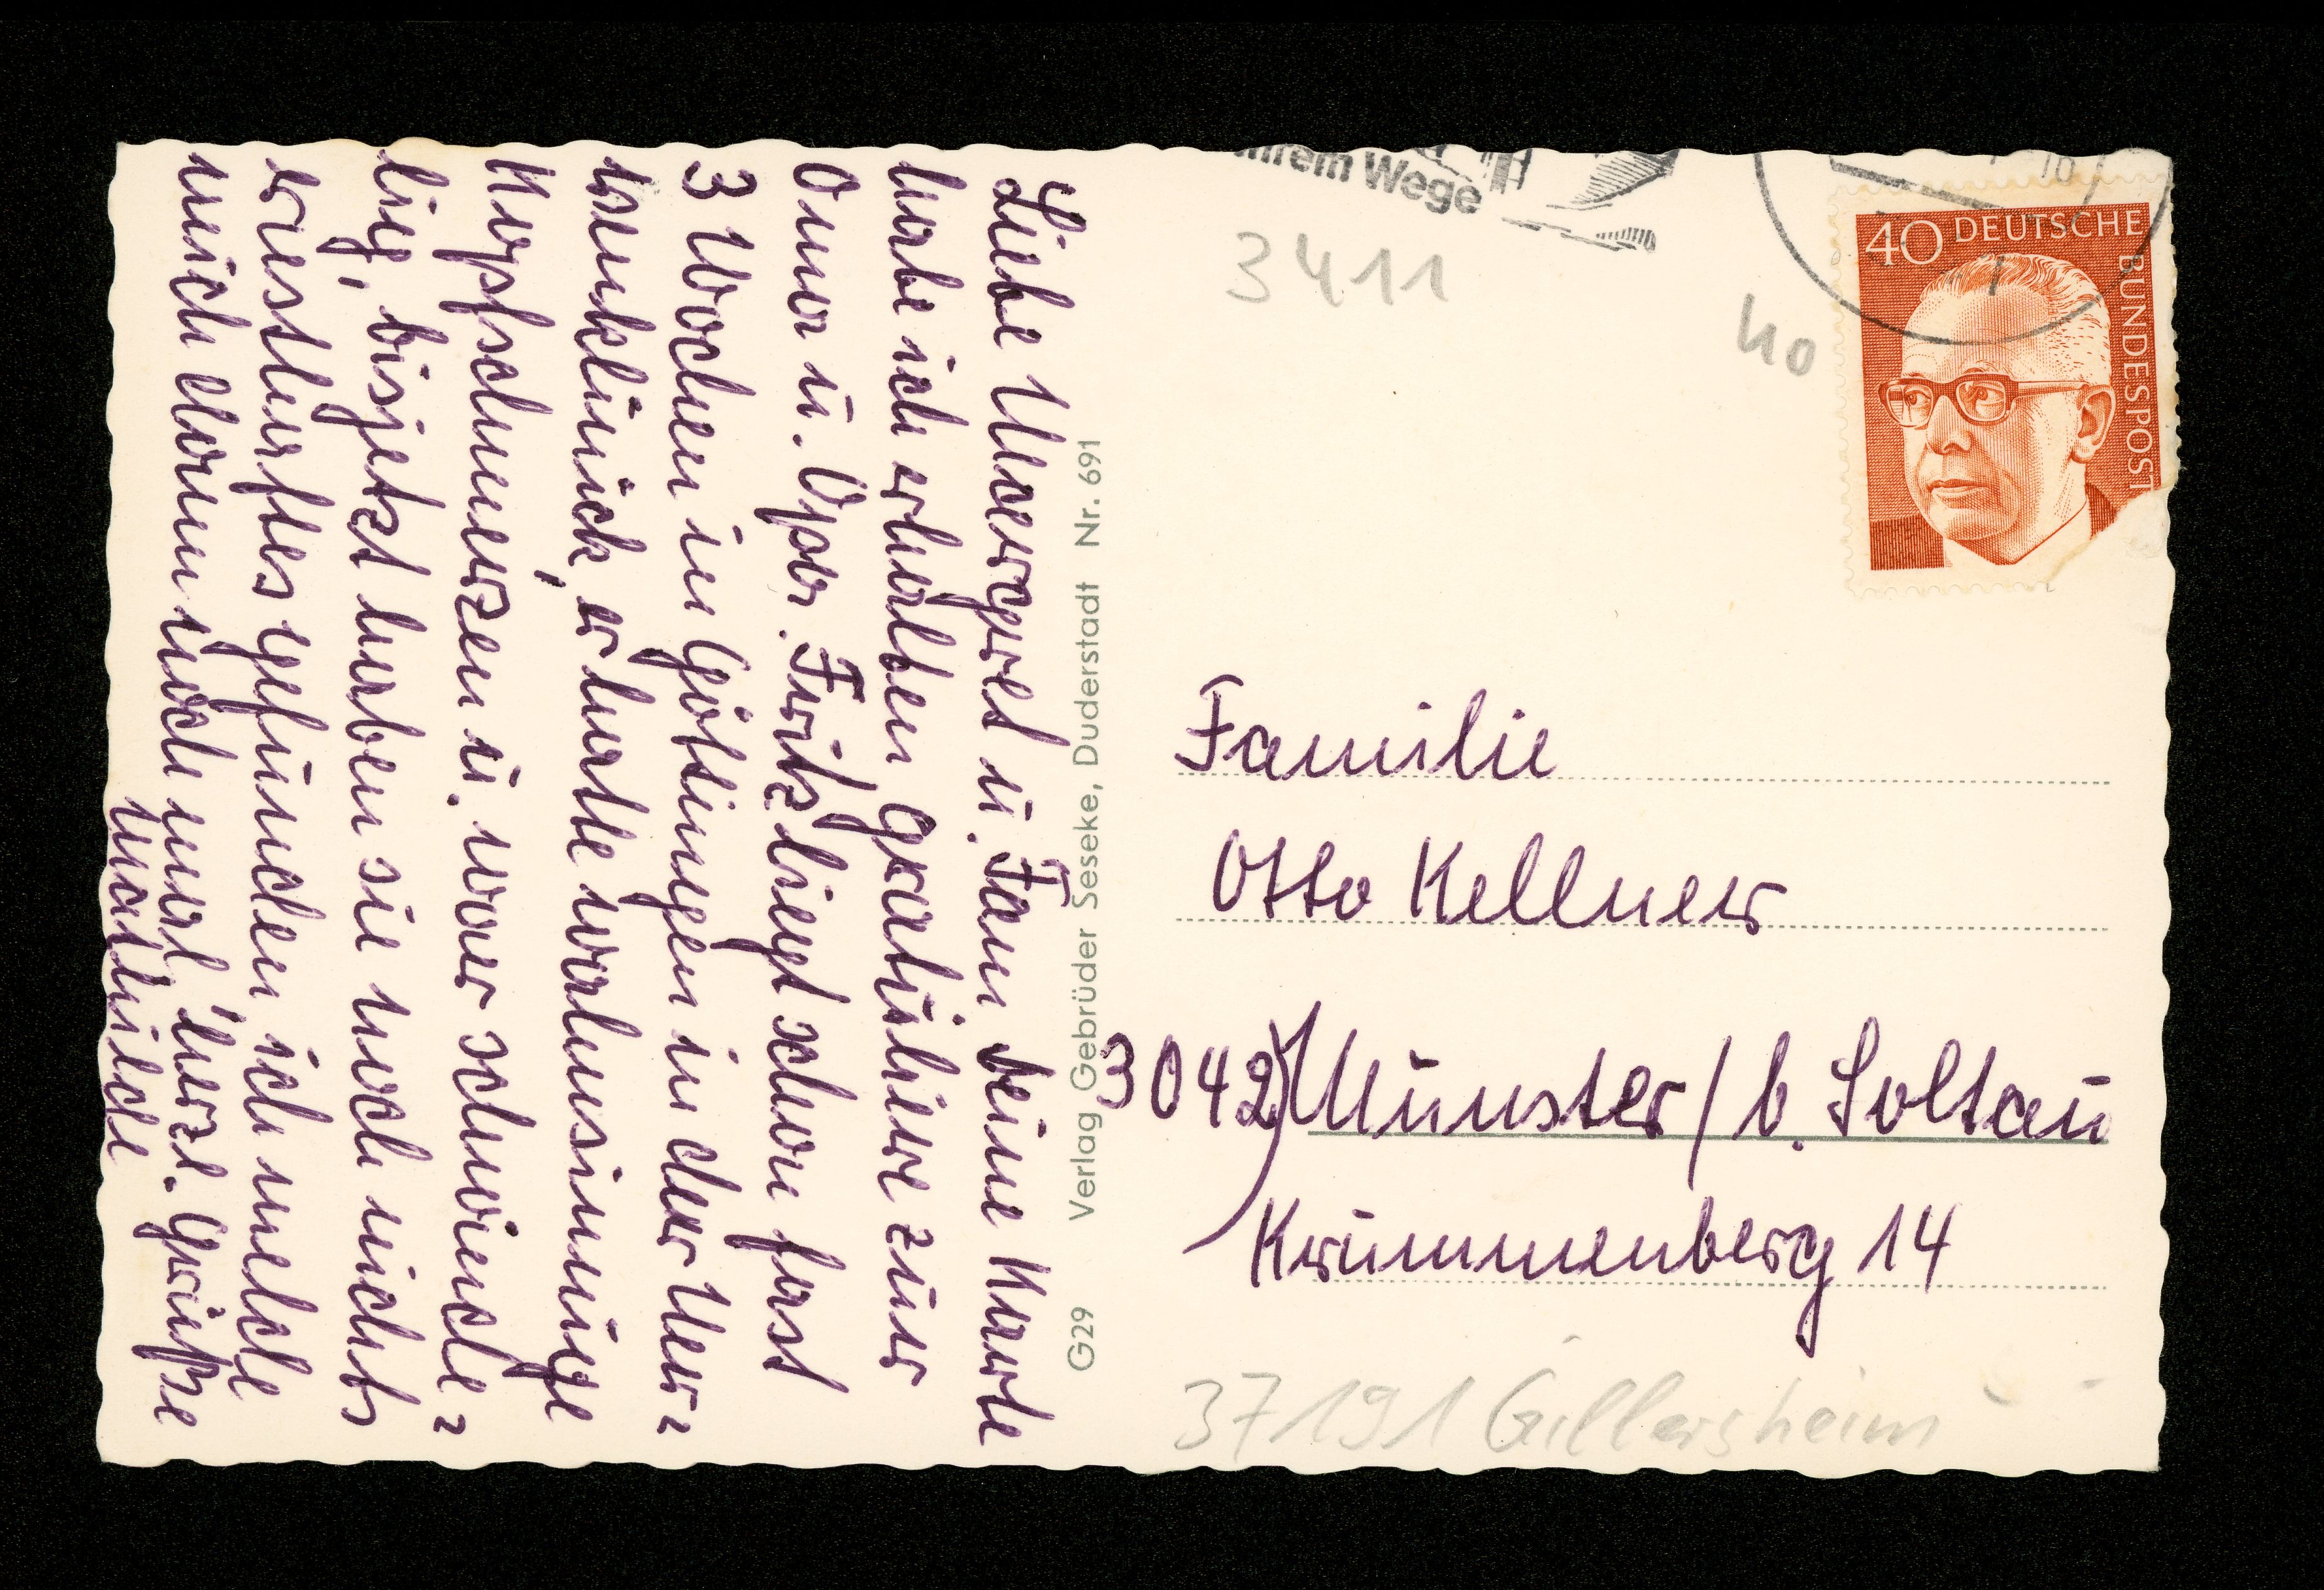 Liebe Margret u. Fam. Deine Karte
habe ich erhalten gratuliere zur
Oma u. Opa. Fritz liegt schon fast
3 Wochen in Göttingen in der Ner=
venklinick, er hatte wahnsinnige
Kopfschmerzen u. war schwinde=
lig, bisjetzt haben sie noch nichts
ernsthaftes gefunden, ich melde
mich dann noch mal, herz. Grüße
Mathilde
G29 Verlag Gebrüder Seseke, Duderstadt Nr. 691
Wege
3411
40
40 DEUTSCHE BUNDESPOST
Familie
Otto Kellner
3042 Munster / b. Soltau
Krummenberg 14
37191 Gillersheim